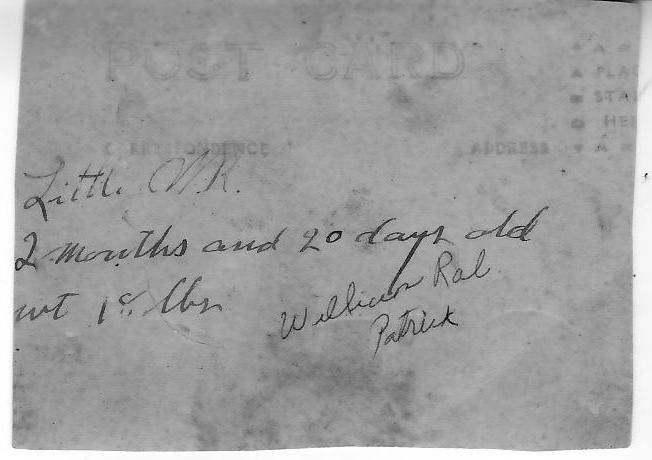 POST CARD
PLA
STA
HE
CORRESPONDENCE ADDRESS
Little W.R.
2 months and 20 days old
wt 18 lbs
William Ral
Patrick